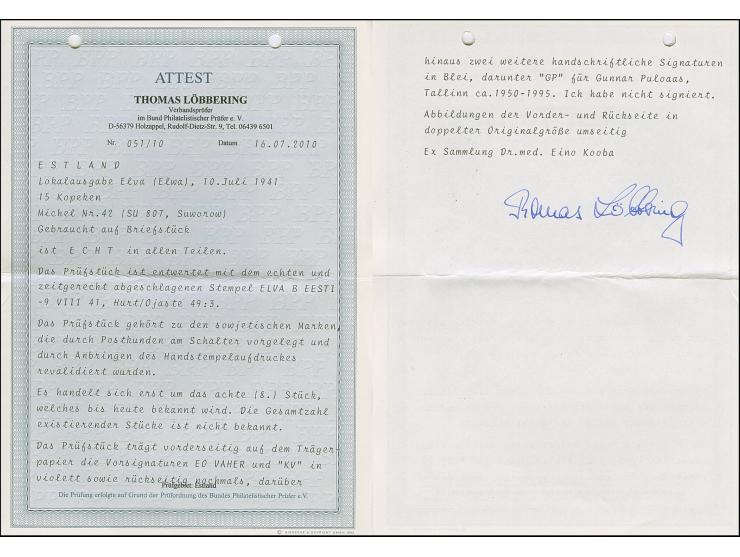 ATTEST
THOMAS LÖBBERING
Verbandsprüfer
im Bund Philatelistischer Prüfer e. V.
D-56379 Holzappel, Rudolf-Dietz-Str. 9, Tel. 06439 6501
Nr. 051/10 Datum 16.07.2010
E S T L A N D
Lokalausgabe Elva (Elwa), 10.Juli 1941
15 Kopeken
Michel Nr.42 (SU 807, Suworow)
Gebraucht auf Briefstück
ist E C H T in allen Teilen.
Das Prüfstück ist entwertet mit dem echten und
zeitgerecht abgeschlagenen Stempel ELVA B EESTI
-9 VIII 41, Hurt/Ojaste 49:3.
Das Prüfstück gehört zu den sowjetischen Marken,
die durch Postkunden am Schalter vorgelegt und
durch Anbringen des Handstempelaufdruckes
revalidiert wurden.
Es handelt sich erst um das achte (8.) Stück,
welches bis heute bekannt wird. Die Gesamtzahl
existierender Stücke ist nicht bekannt.
Das Prüfstück trägt vorderseitig auf dem Träger-
papier die Vorsignaturen EO VAHER und "KV" in
violett sowie rückseitig nochmals, darüber
Prüfgebiet: Estland
Die Prüfung erfolgte auf Grund der Prüfordnung des Bundes Philatelistischer Prüfer e.V.
hinaus zwei weitere handschriftliche Signaturen
in Blei, darunter "GP" für Gunnar Puloaas,
Tallinn ca.1950-1995. Ich habe nicht signiert.
Abbildungen der Vorder- und Rückseite in
doppelter Originalgröße umseitig
Ex Sammlung Dr.med. Eino Kooba
Thomas Löbbering